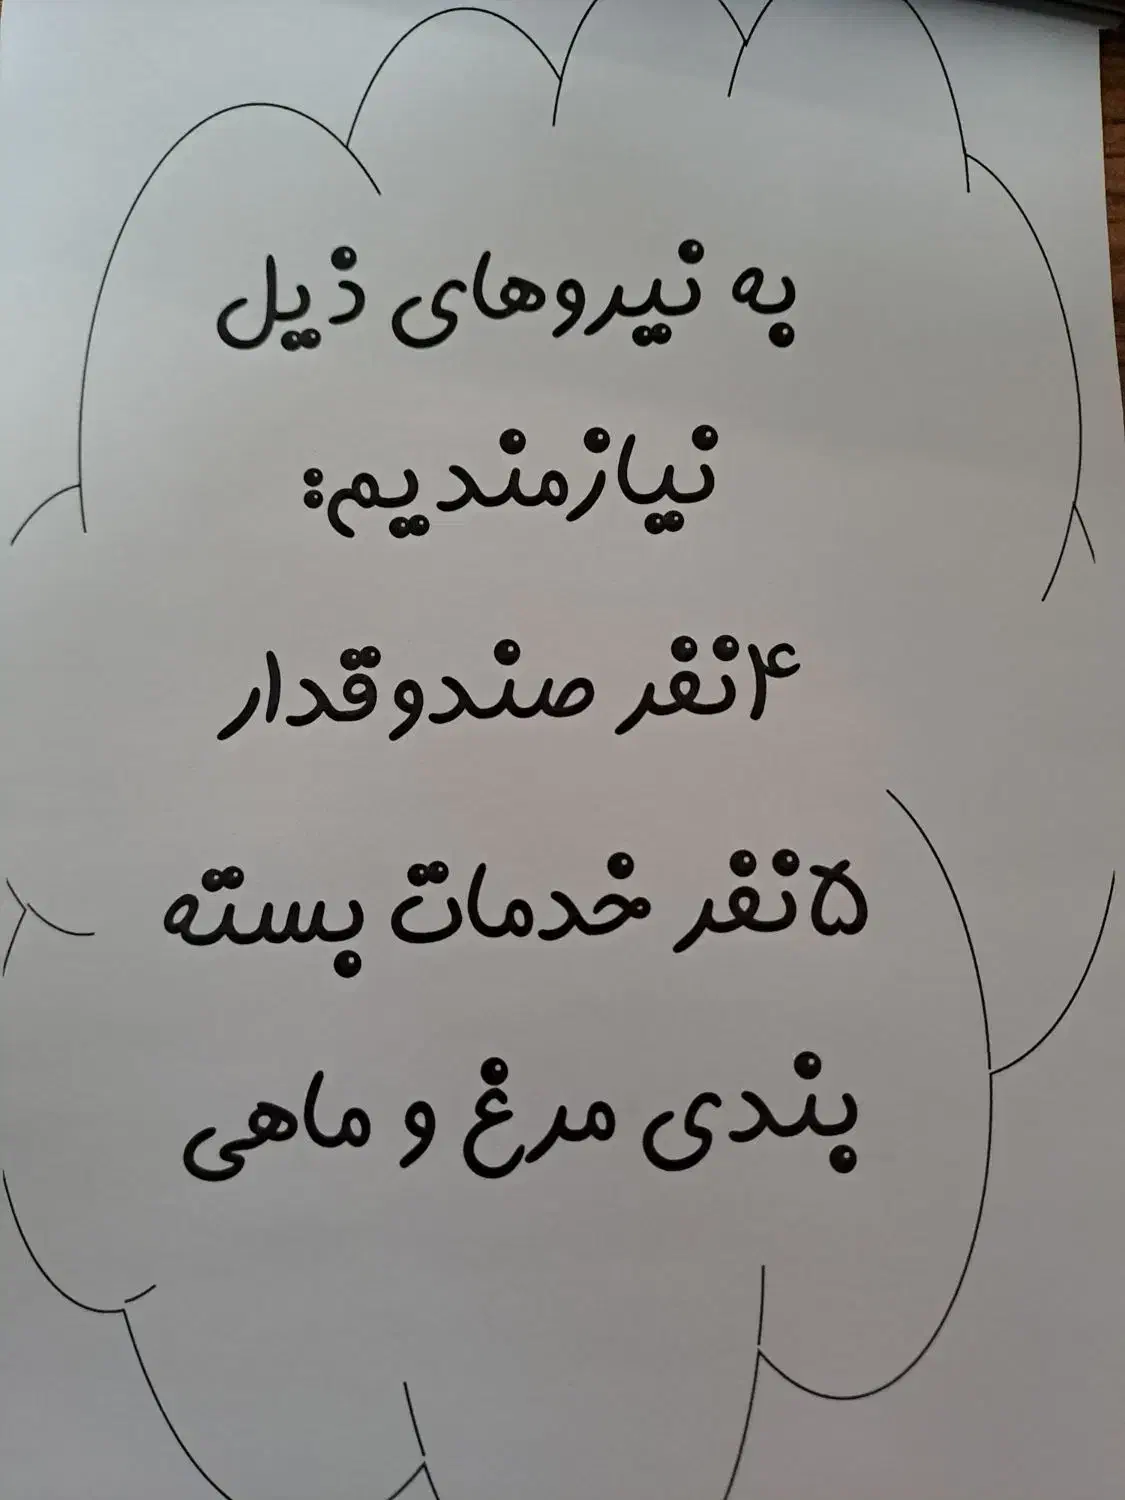 به نیروهای ذیل
نیازمندیم:
۴نفر صندوقدار
۵نفر خدمات بسته
بندی مرغ و ماهی